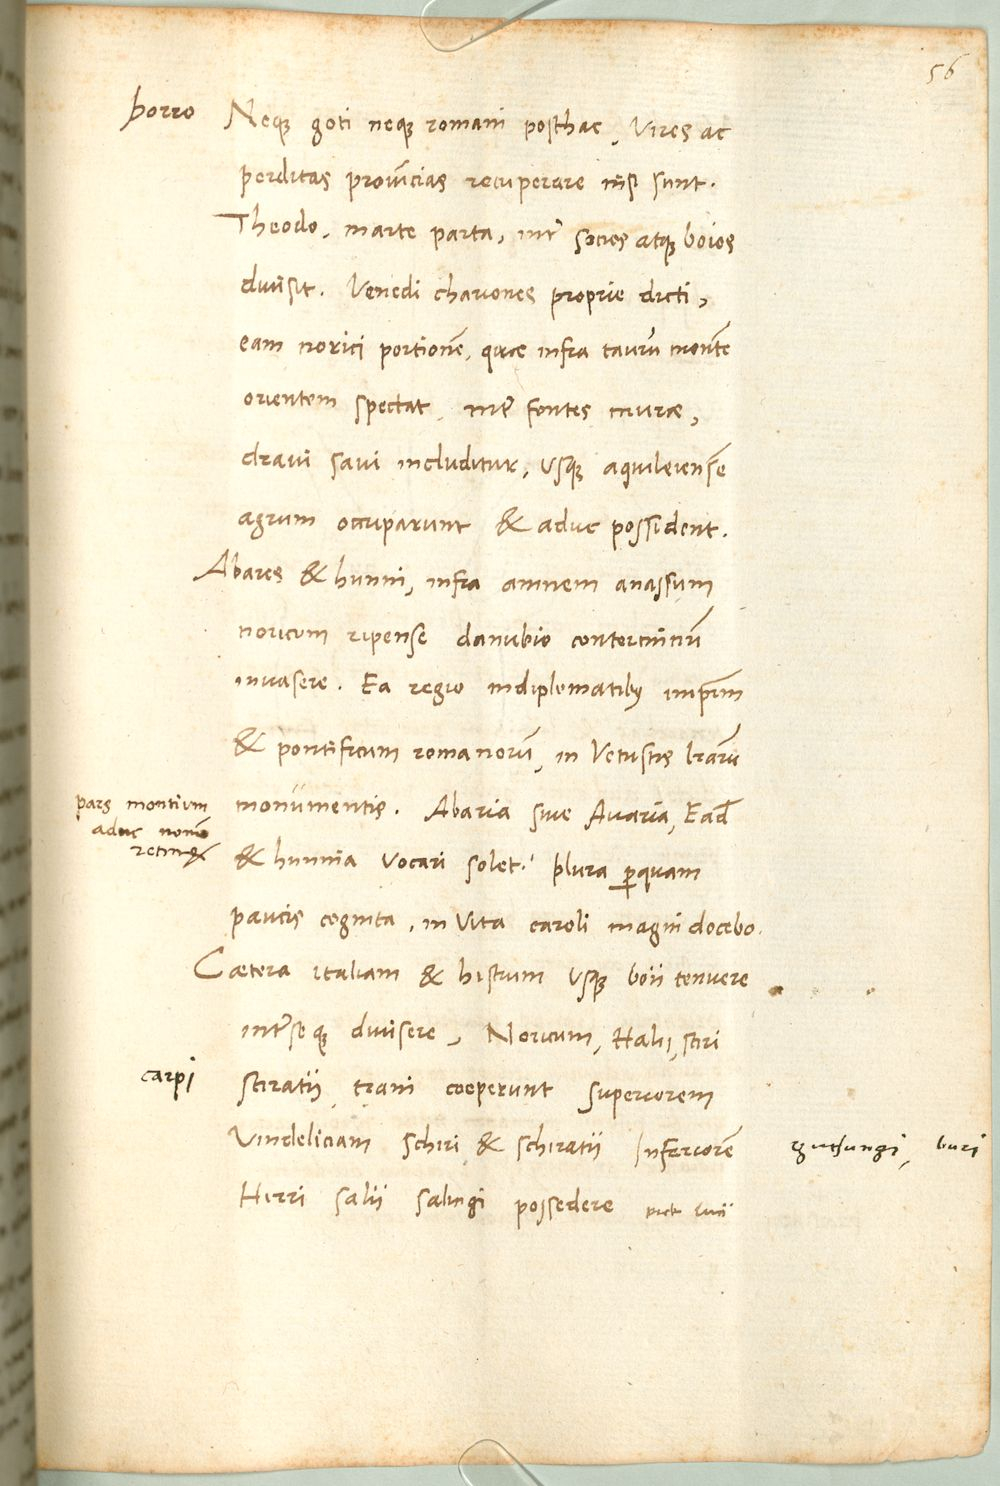 56
porro
Neq; goti neq; romani posthac, vires ac
perditas provīcias recuperare nisi sunt.
Theodo, marte parta, int̄ socios atq; boios
divisit. Venedi chariones proprie dicti,
eam norici portionē, quae infra taurū mōte
orientem spectat, int̄ fontes murae,
dravi savi includitur, usq; aquileiensē
agrum occuparunt & aduc possident.
Abares & hunni, infra amnem anassum
noricum ripense danubio conterminū
invasere. Ea regio in diplomatibꝫ imp̄m
& pontificum romanorū, in vetustis lr̄arū
pars montium
aduc nomē
retinet
monumentis. Abaria sive Avaria, Ead̄
& hunnia vocari solet. plura ꝑquam
paucis cognita, in vita caroli magni docebo.
Caetera italiam & histrum usq; boii tenuere
int̄ se q; divisere, Noricum, Halii, sciri
carpi
sciratii, trani coeperunt superiorem
Vindeliciam schiri & schiratii Inferiorē
guthungi, buri
Hirri salii salingi possedere